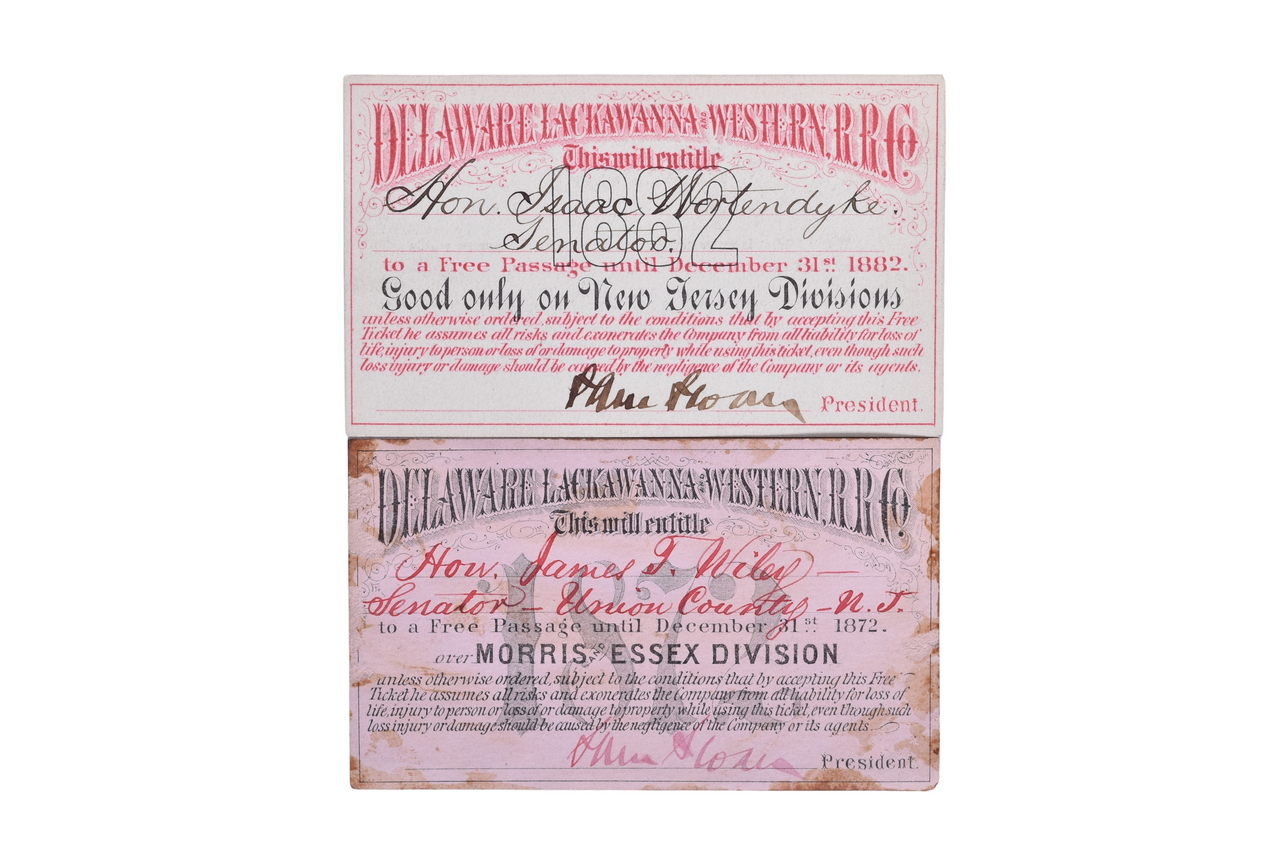 DELAWARE LACKAWANNA AND WESTERN. R.R. Co
This will entitle
1882
Hon. Isaac Wortendyke.
Senator.
to a Free Passage until December 31st. 1882.
Good only on New Jersey Divisions
unless otherwise ordered, subject to the conditions that by accepting this Free
Ticket he assumes all risks and exonerates the Company from all liability for loss of
life, injury to person or loss of or damage to property while using this ticket, even though such
loss injury or damage should be caused by the negligence of the Company or its agents.
Sam Sloan President.
DELAWARE LACKAWANNA AND WESTERN. R.R. Co.
This will entitle
1872
Hon. James T. Wiley –
Senator – Union County – N.J.
to a Free Passage until December 31st. 1872.
over MORRIS AND ESSEX DIVISION
unless otherwise ordered, subject to the conditions that by accepting this Free
Ticket he assumes all risks and exonerates the Company from all liability for loss of
life, injury to person or loss of or damage to property while using this ticket, even though such
loss injury or damage should be caused by the negligence of the Company or its agents.
Sam Sloan President.